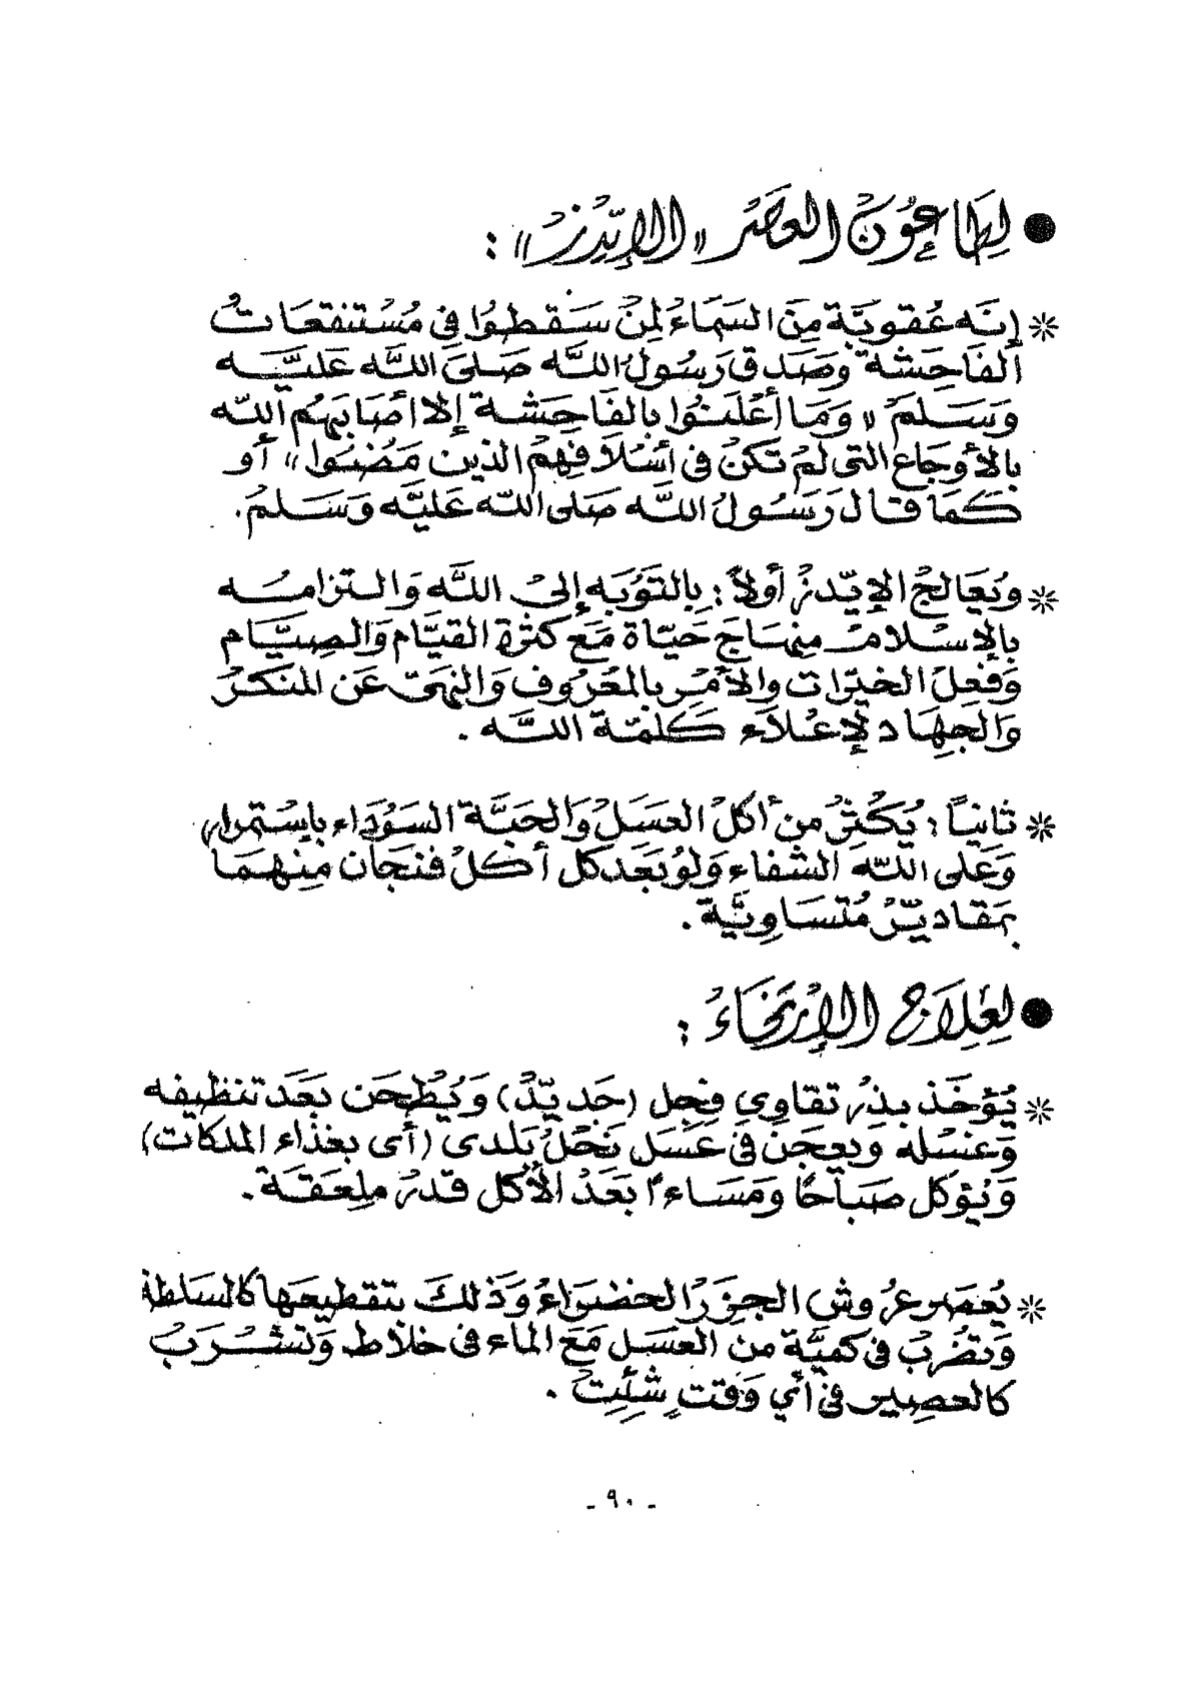 ● لطاعون العصر «الإيدز» :
* إنه عقوبة من السماء لمن سقطوا في مستنقعات
الفاحشة وصدق رسول الله صلى الله عليه
وسلم « وما أعلنوا بالفاحشة إلا أصابهم الله
بالأوجاع التى لم تكن فى أسلافهم الذين مضوا » أو
كما قال رسول الله صلى الله عليه وسلم.
* ويعالج الإيدز أولاً : بالتوبه إلى الله والتزامه
بالإسلام منهاج حياة مع كثرة القيام والصيام
وفعل الخيرات والأمر بالمعروف والنهى عن المنكر
والجهاد لإعلاء كلمة الله .
* ثانياً : يكثر من أكل العسل والحبة السوداء باستمرار
وعلى الله الشفاء ولو بعد كل أكل فنجان منهما
بمقادير متساوية .
● لعلاج الإرتخاء :
* يؤخذ بذر تقاوي فجل (جديد) ويطحن بعد تنظيفه
وغسله ويعجن فى عسل نحل بلدى (أى بغذاء الملكات)
ويؤكل صباحاً ومساءاً بعد الأكل قدر ملعقة .
* يعصر عروش الجزر الخضراء وذلك بتقطيعها كالسلطة
وتضرب فى كمية من العسل مع الماء فى خلاط وتشرب
كالعصير فى أي وقت شئت .
- ٩٠ -